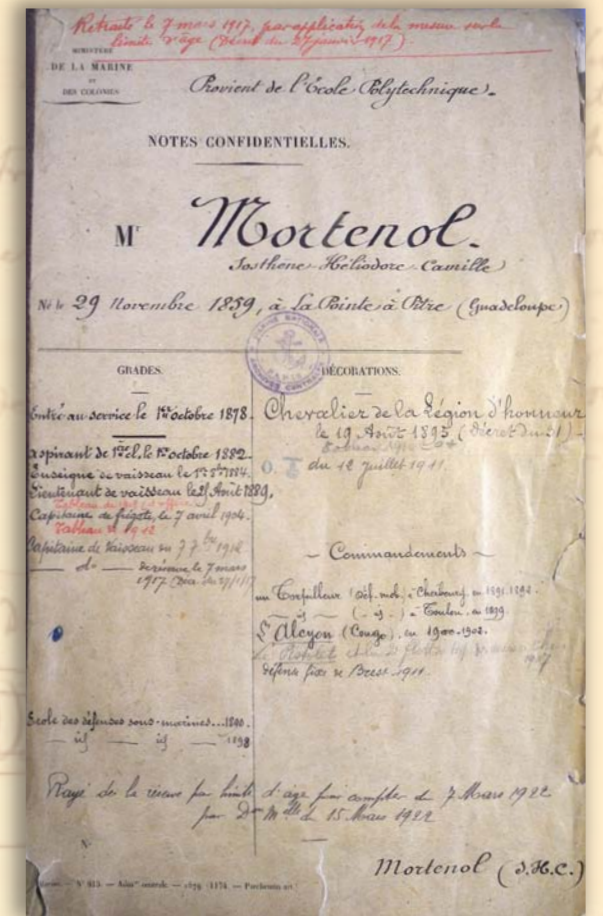 Retraité le 7 mars 1917, par application de la mesure sur la
limite d'âge (Décret du 27 janvier 1917).
MINISTÈRE
DE LA MARINE
ET
DES COLONIES
Provient de l'École Polytechnique.
NOTES CONFIDENTIELLES.
Mr Mortenol.
Sosthène Héliodore Camille
Né le 29 Novembre 1859, à La Pointe à Pitre (Guadeloupe)
MARINE NATIONALE
PARIS
ARCHIVES CENTRALES
GRADES.
Entré au service le 1er octobre 1878.
aspirant de 1ère cl. le 1er octobre 1882.
Enseigne de vaisseau le 1884.
Lieutenant de vaisseau le 25 Août 1889.
Capitaine de frégate, le 7 avril 1904.
Tableau de 1912
Capitaine de Vaisseau du 7 7bre 1912
— do — de réserve le 7 mars
1917
École des défenses sous-marines... 1890.
— id — id — 1898
DÉCORATIONS.
Chevalier de la Légion d'honneur
le 19 Août 1895 (Décret du )
Tableau
O. du 12 juillet 1911.
~ Commandements ~
un Torpilleur (Déf. mob.) à Cherbourg, en 1891.1892.
— id — (- id -) à Toulon, en 1899.
Alcyon (Congo), en 1900-1902.
défense fixe de Brest 1911
Rayé de la réserve par limite d'âge pour compter du 7 Mars 1922
par Don Mlle du 15 Mars 1922
N°
Mortenol (S.H.C.)